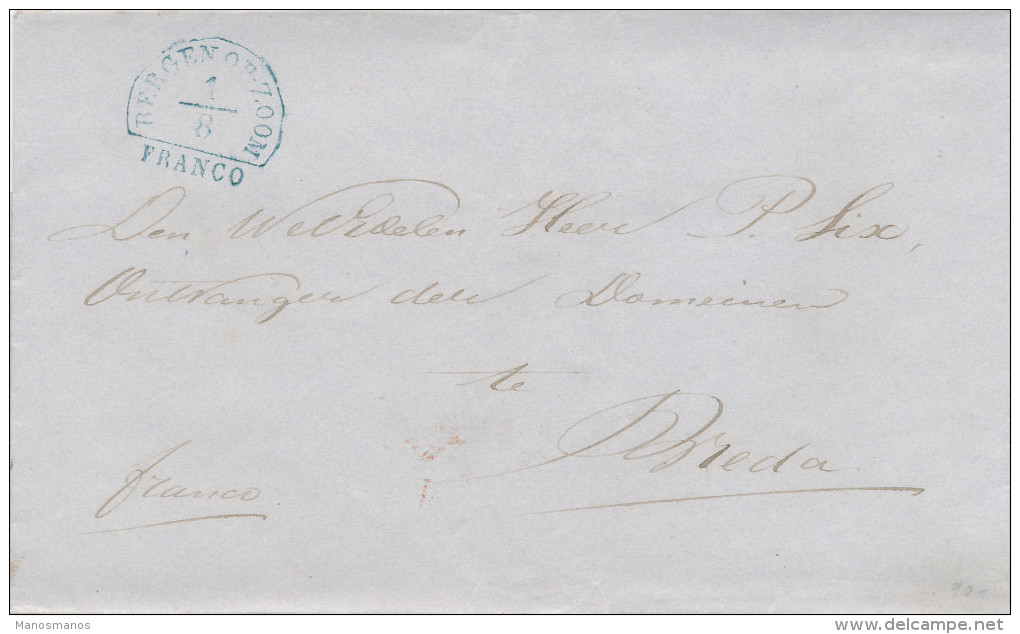 BERGEN OP ZOOM
1
8
FRANCO
Den WelEdelen Heer P. Six,
Ontvanger der Domeinen
te
Breda
franco
Manosmanos
delcampe.net